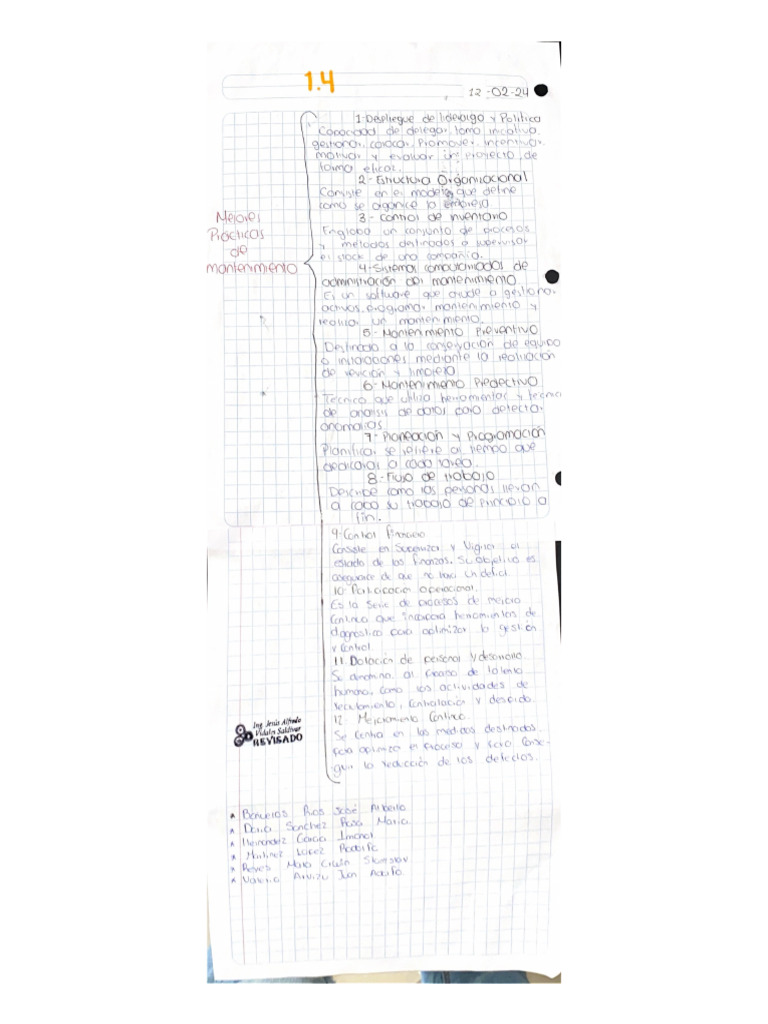 1.4
12-02-24
Mejores
Prácticas
de
mantenimiento
1-Despliegue de liderazgo y Política
Capacidad de delegar, tomo iniciativa,
gestionar, convocar, promover, incentivar,
motivar y evaluar un proyecto de
forma eficaz.
2-Estructura Organizacional
Consiste en el modelo que define
como se organice la empresa
3-Control de inventario
Engloba un conjunto de procesos
y métodos destinados a supervisar
el stock de una compañia.
4-Sistemas computarizados de
administración del mantenimiento
Es un software que ayuda a gestionar
activos, programar mantenimiento y
realizar un mantenimiento.
5-Mantenimiento Preventivo
Destinado a la conservación de equipo
o instalaciones mediante la realización
de revición y limpieza
6-Mantenimiento Predectivo
Técnica que utiliza herramientas y técnica
de analisis de datos para detectar
anomalias
7-Planeación y Programación
Planificar se refiere al tiempo que
dedicaras a cada tarea.
8-Flujo de trabajo
Describe como las personas llevan
a cabo su trabajo de principio a
fin.
9-Control Financiero
Consiste en Supervizar y Vigilar el
estado de las finanzas. Su objetivo es
asegurarce de que no haya un deficit.
10. Participación operacional.
Es la serie de procesos de mejora
continua que incorpora herramientas de
diagnostico para optimizar la gestión
y control.
11. Dotación de personal y desarrollo
Se denomina al proceso de talento
humano, como las actividades de
reclutamiento, contratación y despido.
12. Mejoramiento Continuo.
Se centra en las medidas destinadas
para optimizar el proceso y para conse-
guir la reducción de los defectos.
Ing. Jesús Alfredo
Vidales Saldivar
REVISADO
* Bañuelos Rios José Alberto
* Daria Sanchez Rosa Maria
* Hernandez Garcia Imanol
* Martinez López Rodolfo
* Reyes Mata
* Valencia Arvizu Juan Adolfo